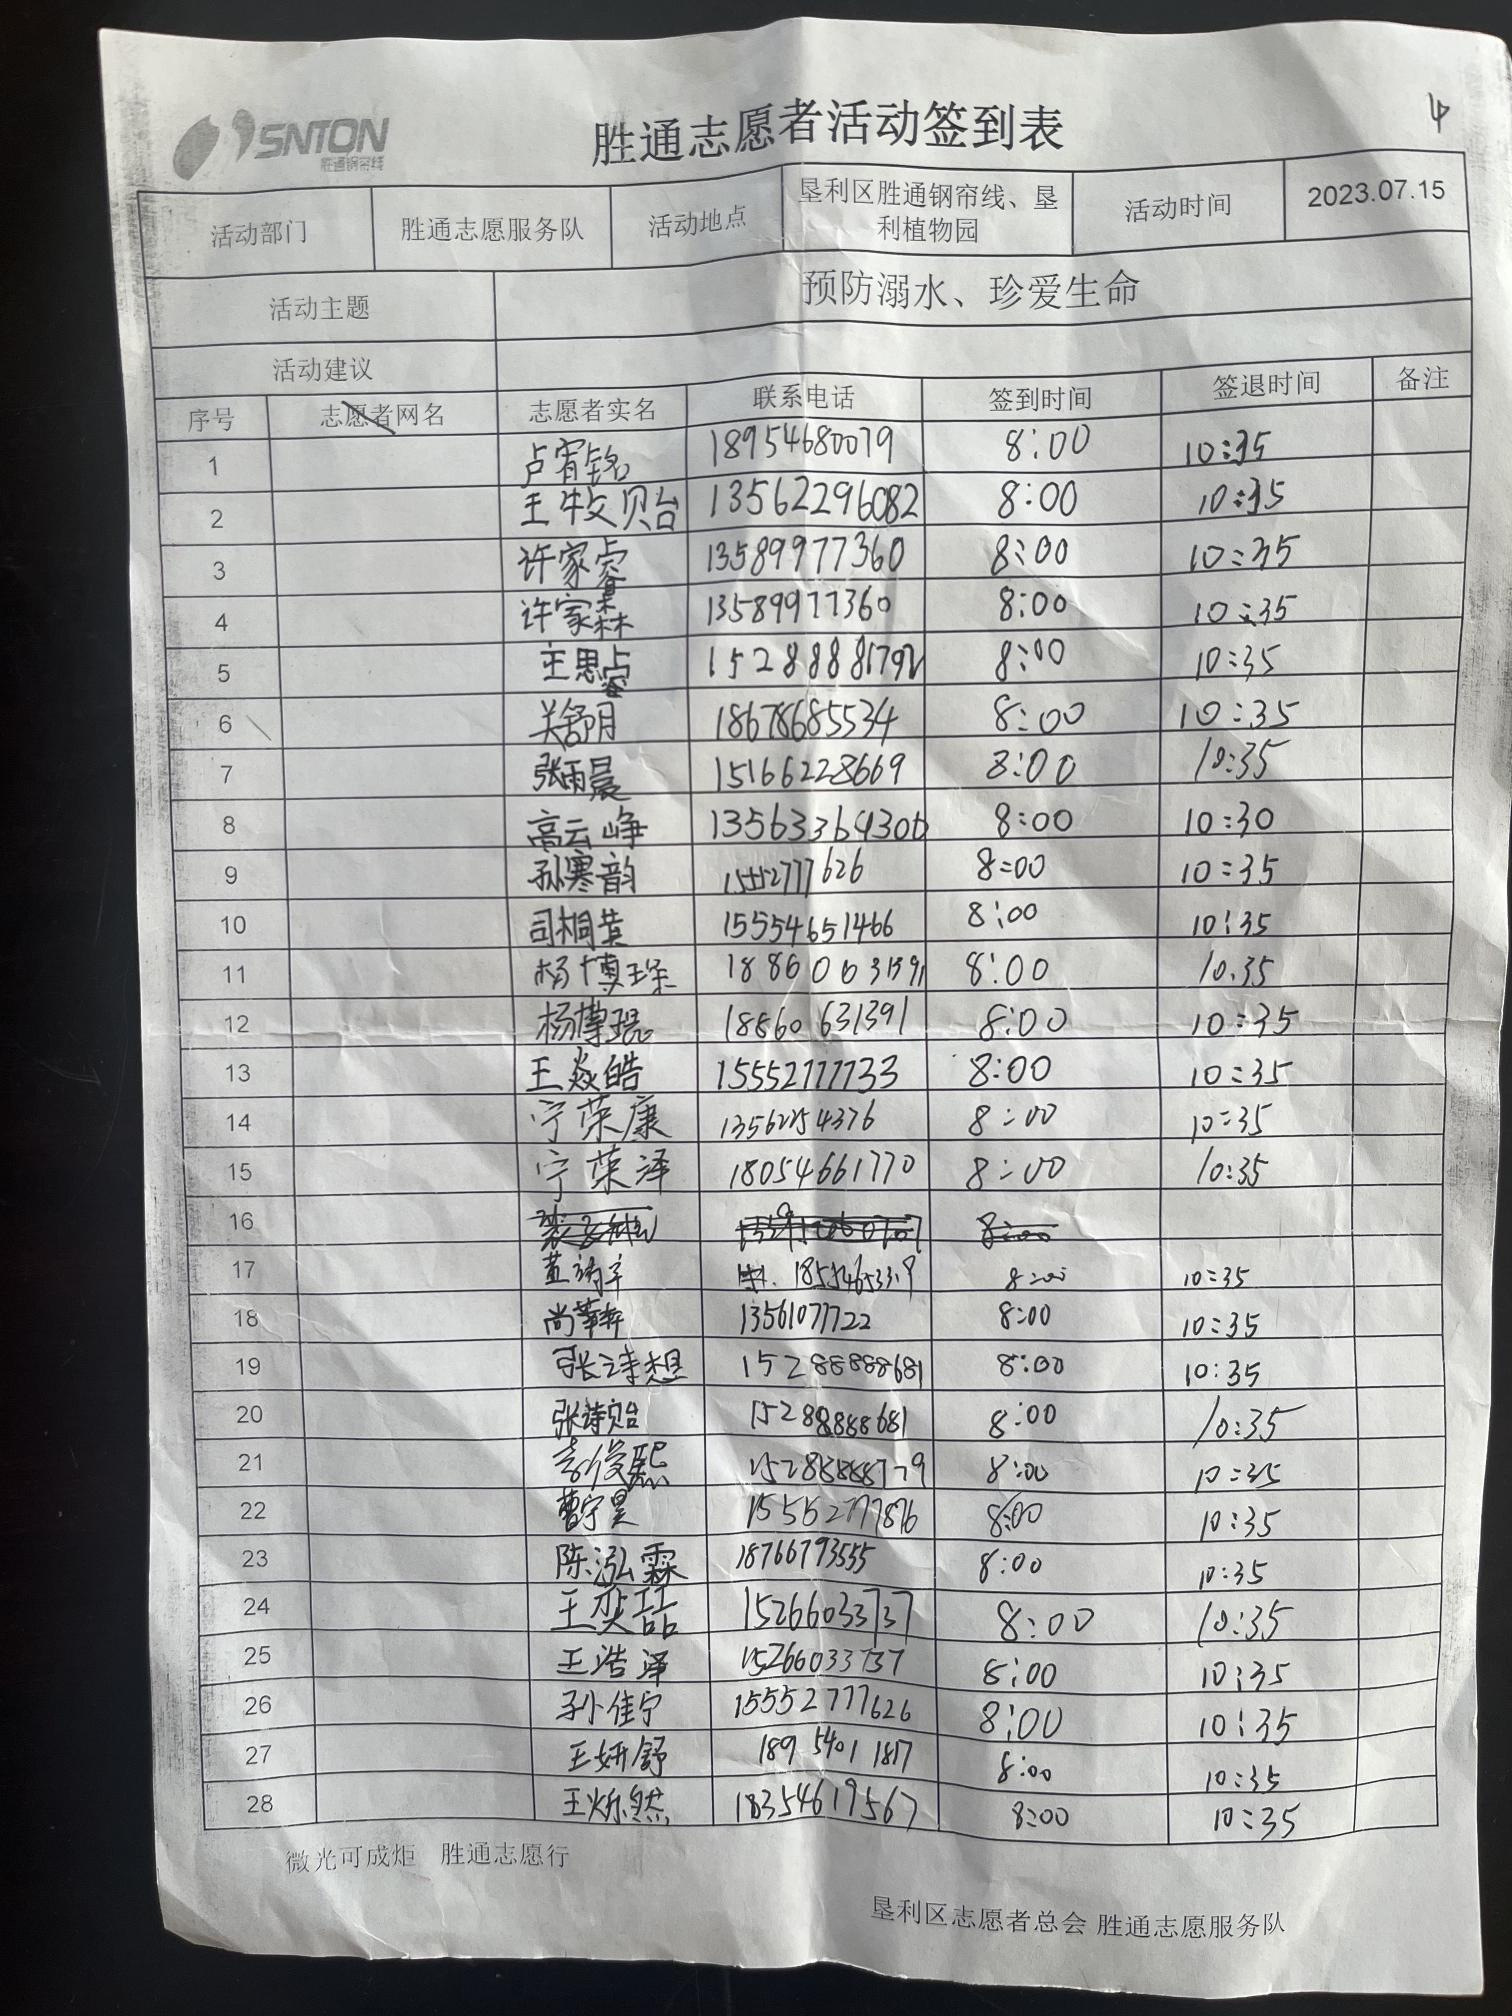 SNTON
胜通钢帘线
胜通志愿者活动签到表
4
活动部门 胜通志愿服务队 活动地点 垦利区胜通钢帘线、垦利植物园 活动时间 2023.07.15
活动主题 预防溺水、珍爱生命
活动建议
序号 志愿者网名 志愿者实名 联系电话 签到时间 签退时间 备注
1 卢宥铭 18954680079 8:00 10:35
2 王牧贻 13562296082 8:00 10:35
3 许家睿 13589977360 8:00 10:35
4 许家森 13589977360 8:00 10:35
5 王思睿 8:00 10:35
6 关舒月 18678685534 8:00 10:35
7 张雨晨 15166228669 8:00 10:35
8 高云峥 8:00 10:30
9 孙寒韵 15552777626 8:00 10:35
10 司桐 15554651466 8:00 10:35
11 杨博琛 8:00 10.35
12 杨博琨 18860631391 8:00 10:35
13 王焱皓 15552777733 8:00 10:35
14 宁荣康 8:00 10:35
15 宁荣泽 18054661770 8:00 10:35
16 8:00
17 8:00 10:35
18 尚 13561077722 8:00 10:35
19 张诗想 15288888681 8:00 10:35
20 张诗贻 15288888681 8:00 10:35
21 俊熙 8:00 10:35
22 曹宇昊 15552777876 8:00 10:35
23 陈泓霖 18766793555 8:00 10:35
24 王奕喆 15266033737 8:00 10:35
25 王浩泽 15266033737 8:00 10:35
26 孙佳宁 15552777626 8:00 10:35
27 王妍舒 189 5401 1817 8:00 10:35
28 王烁然 18354619567 8:00 10:35
微光可成炬 胜通志愿行
垦利区志愿者总会 胜通志愿服务队